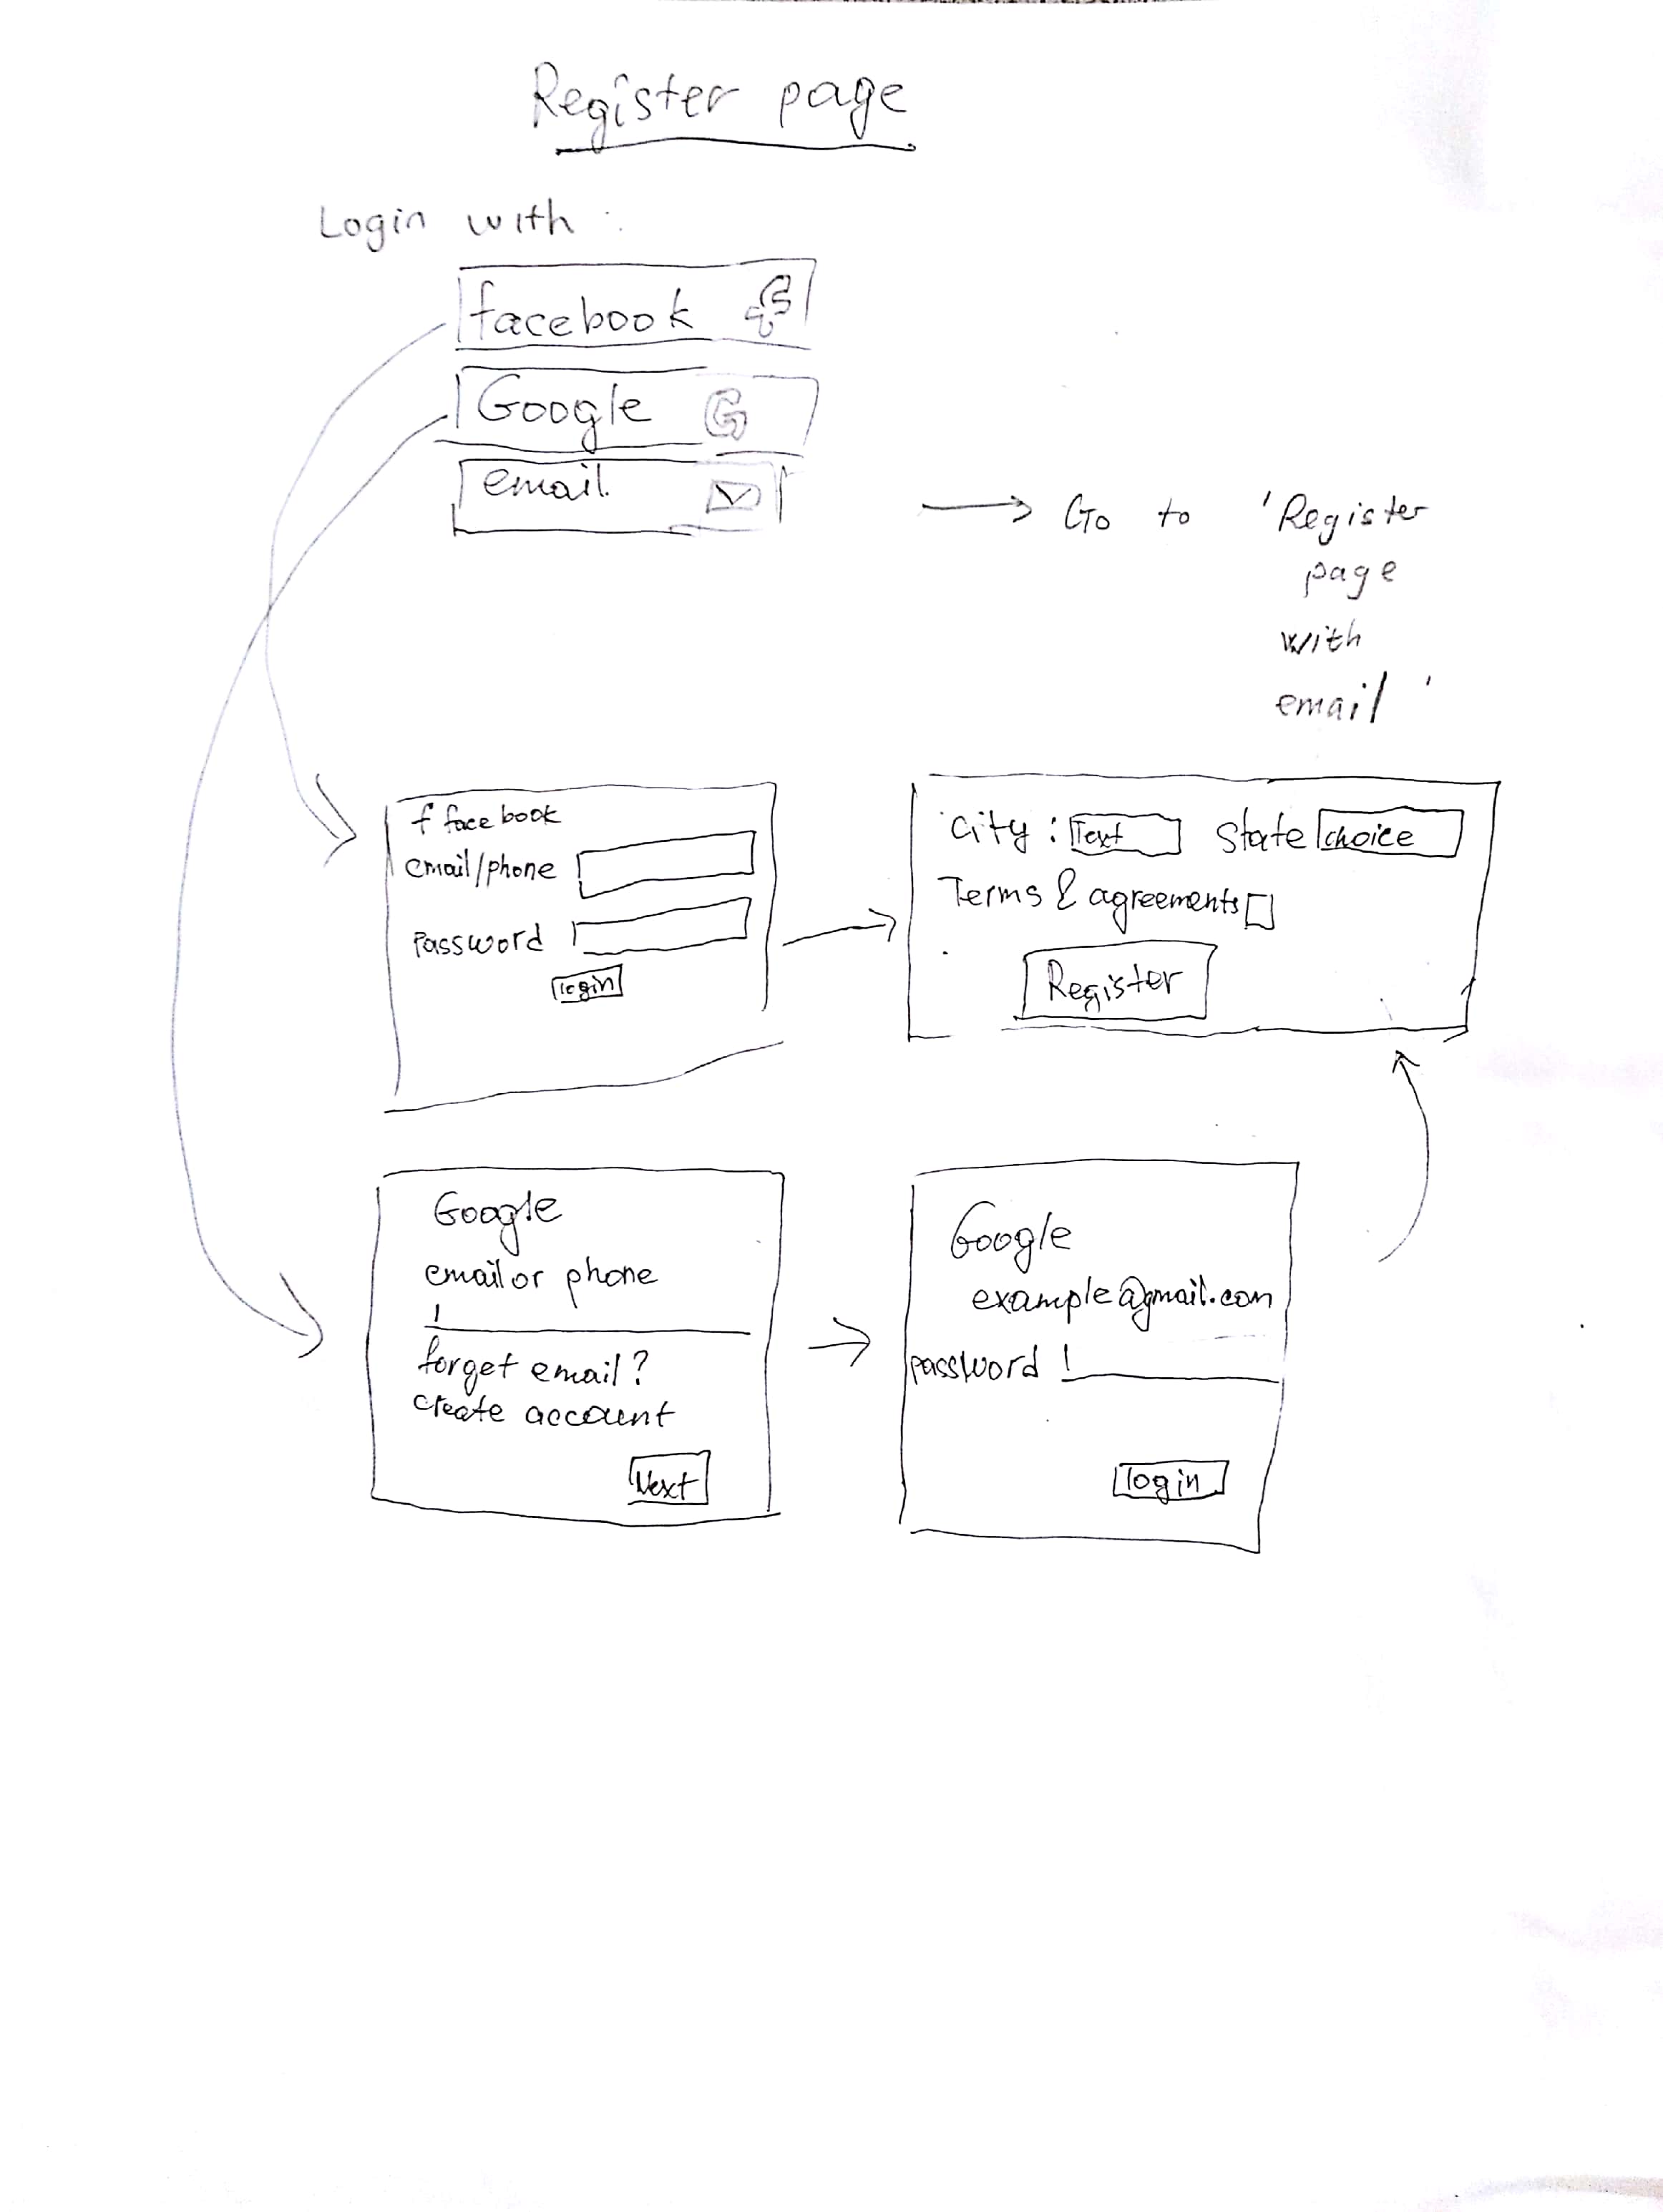 Register page
Login with :
facebook f
Google G
email
Go to 'Register
page
with
email'
f facebook
email/phone
Password
login
City : Text State choice
Terms & agreements
Register
Google
email or phone
forget email?
create account
Next
Google
example@gmail.com
password
login